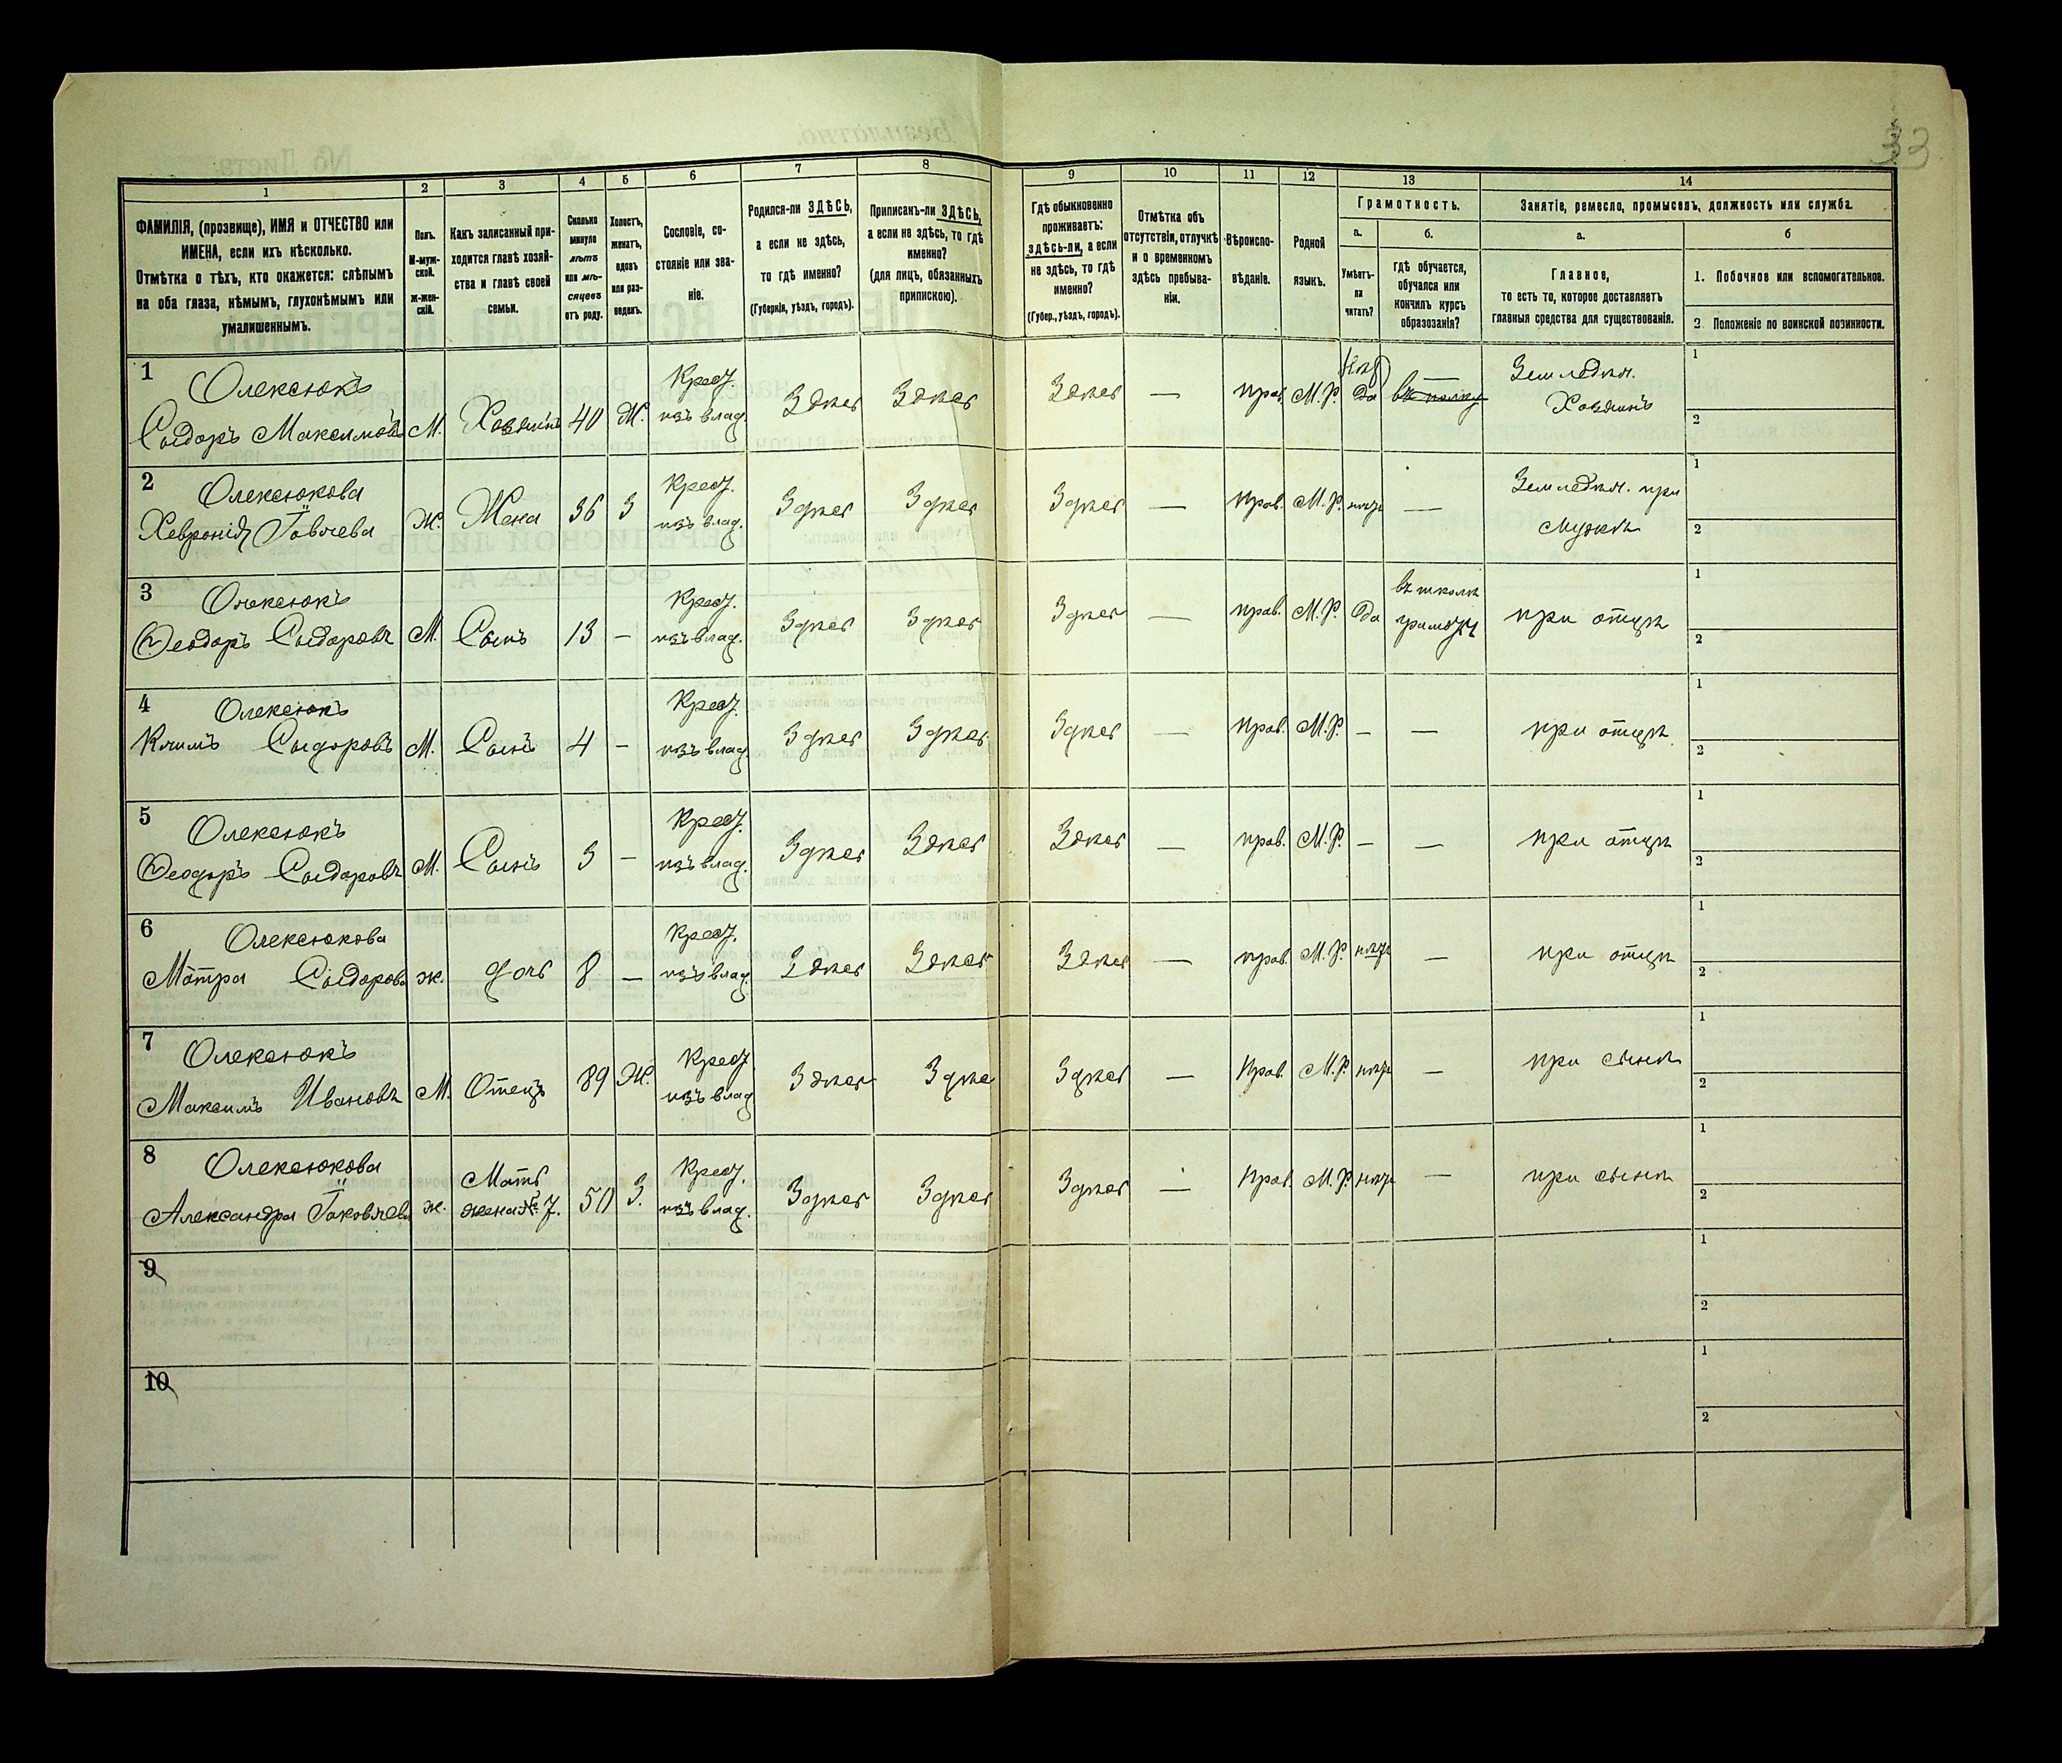 33
1 2 3 4 5 6 7 8 9 10 11 12 13 14
ФАМИЛІЯ, (прозвище), ИМЯ и ОТЧЕСТВО или
ИМЕНА, если ихъ нѣсколько.
Отмѣтка о тѣхъ, кто окажется: слѣпымъ
на оба глаза, нѣмымъ, глухонѣмымъ или
умалишеннымъ.
Полъ.
М-муж-
ской.
ж-жен-
скій.
Какъ записанный при-
ходится главѣ хозяй-
ства и главѣ своей
семьи.
Сколько
минуло
лѣтъ
или мѣ-
сяцевъ
отъ роду.
Холостъ,
женатъ,
вдовъ
или раз-
веденъ.
Сословіе, со-
стояніе или зва-
ніе.
Родился-ли ЗДѢСЬ,
а если не здѣсь,
то гдѣ именно?
(Губернія, уѣздъ, городъ).
Приписанъ-ли ЗДѢСЬ,
а если не здѣсь, то гдѣ
именно?
(для лицъ, обязанныхъ
припискою).
Гдѣ обыкновенно
проживаетъ:
ЗДѢСЬ-ЛИ, а если
не здѣсь, то гдѣ
именно?
(Губер., уѣздъ, городъ).
Отмѣтка объ
отсутствіи, отлучкѣ
и о временномъ
здѣсь пребыва-
ніи.
Вѣроиспо-
вѣданіе.
Родной
языкъ.
Грамотность.
а.
Умѣетъ-
ли
читать?
б.
Гдѣ обучается,
обучался или
кончилъ курсъ
образозанія?
Занятіе, ремесло, промыселъ, должность или служба.
а.
Главное,
то есть то, которое доставляетъ
главныя средства для существованія.
б
1. Побочное или вспомогательное.
2. Положеніе по воинской повинности.
1 Олексюкъ Крест. Земледѣл. 1
Сыдоръ Максимовъ М. Хозяинъ 40 Ж. изъ влад. Здѣсь Здѣсь Здѣсь — прав. М.Р. да въ полку — Хозяинъ 2
2 Олексюкова Крест. Земледѣл. при 1
Ж. Жена 36 З изъ влад. Здѣсь Здѣсь Здѣсь — прав. М.Р. нѣтъ — мужѣ 2
3 Олексюкъ Крест. въ школѣ 1
Ѳеодоръ Сыдоровъ М. Сынъ 13 — изъ влад. Здѣсь Здѣсь Здѣсь — прав. М.Р. да грамоты при отцѣ 2
4 Олексюкъ Крест. 1
Климъ Сыдоровъ М. Сынъ 4 — изъ влад. Здѣсь Здѣсь Здѣсь — прав. М.Р. — — при отцѣ 2
5 Олексюкъ Крест. 1
Ѳеодоръ Сыдоровъ М. Сынъ 3 — изъ влад. Здѣсь Здѣсь Здѣсь — прав. М.Р. — — при отцѣ 2
6 Олексюкова Крест. 1
Мотря Сыдорова ж. дочь 8 — изъ влад. Здѣсь Здѣсь Здѣсь — прав. М.Р. нѣтъ — при отцѣ 2
7 Олексюкъ Крест. 1
Максимъ Ивановъ М. Отецъ 89 Ж. изъ влад. Здѣсь Здѣсь Здѣсь — Прав. М.Р. нѣтъ — при сынѣ 2
8 Олексюкова Мать Крест. 1
Александра Яковлева ж. жена № 7. 50 З. изъ влад. Здѣсь Здѣсь Здѣсь — Прав. М.Р. нѣтъ — при сынѣ 2
9 1
2
10 1
2